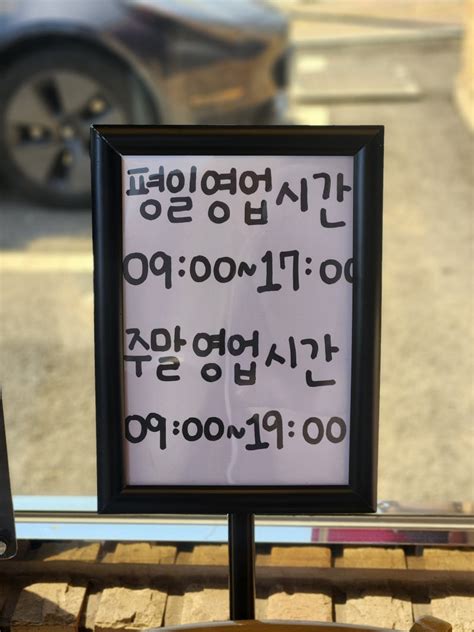 평일영업시간
09:00~17:00
주말영업시간
09:00~19:00